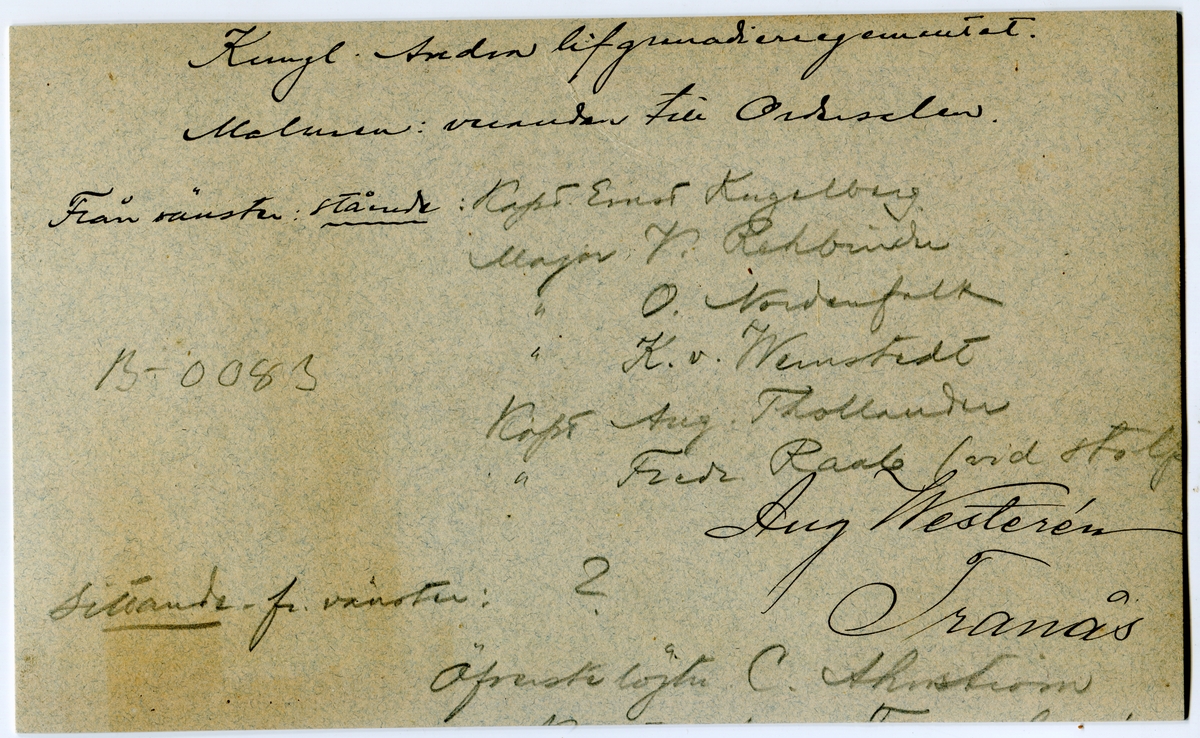 Kungl. Andra lifgrenadierregementet.
Malmen: verandan till Ordersalen.
Från vänster: stående: Kapt. Ernst Kugelberg
Major V. Rehbinder
" O. Nordenfalk
" K. v. Wernstedt
B-0083
Kapt Aug. Thollander
" Fredr. Raab (vid stolp
Aug Westerén
Sittande - fr. vänster: ?
Tranås
Öfverste löjtn C. Ahnström